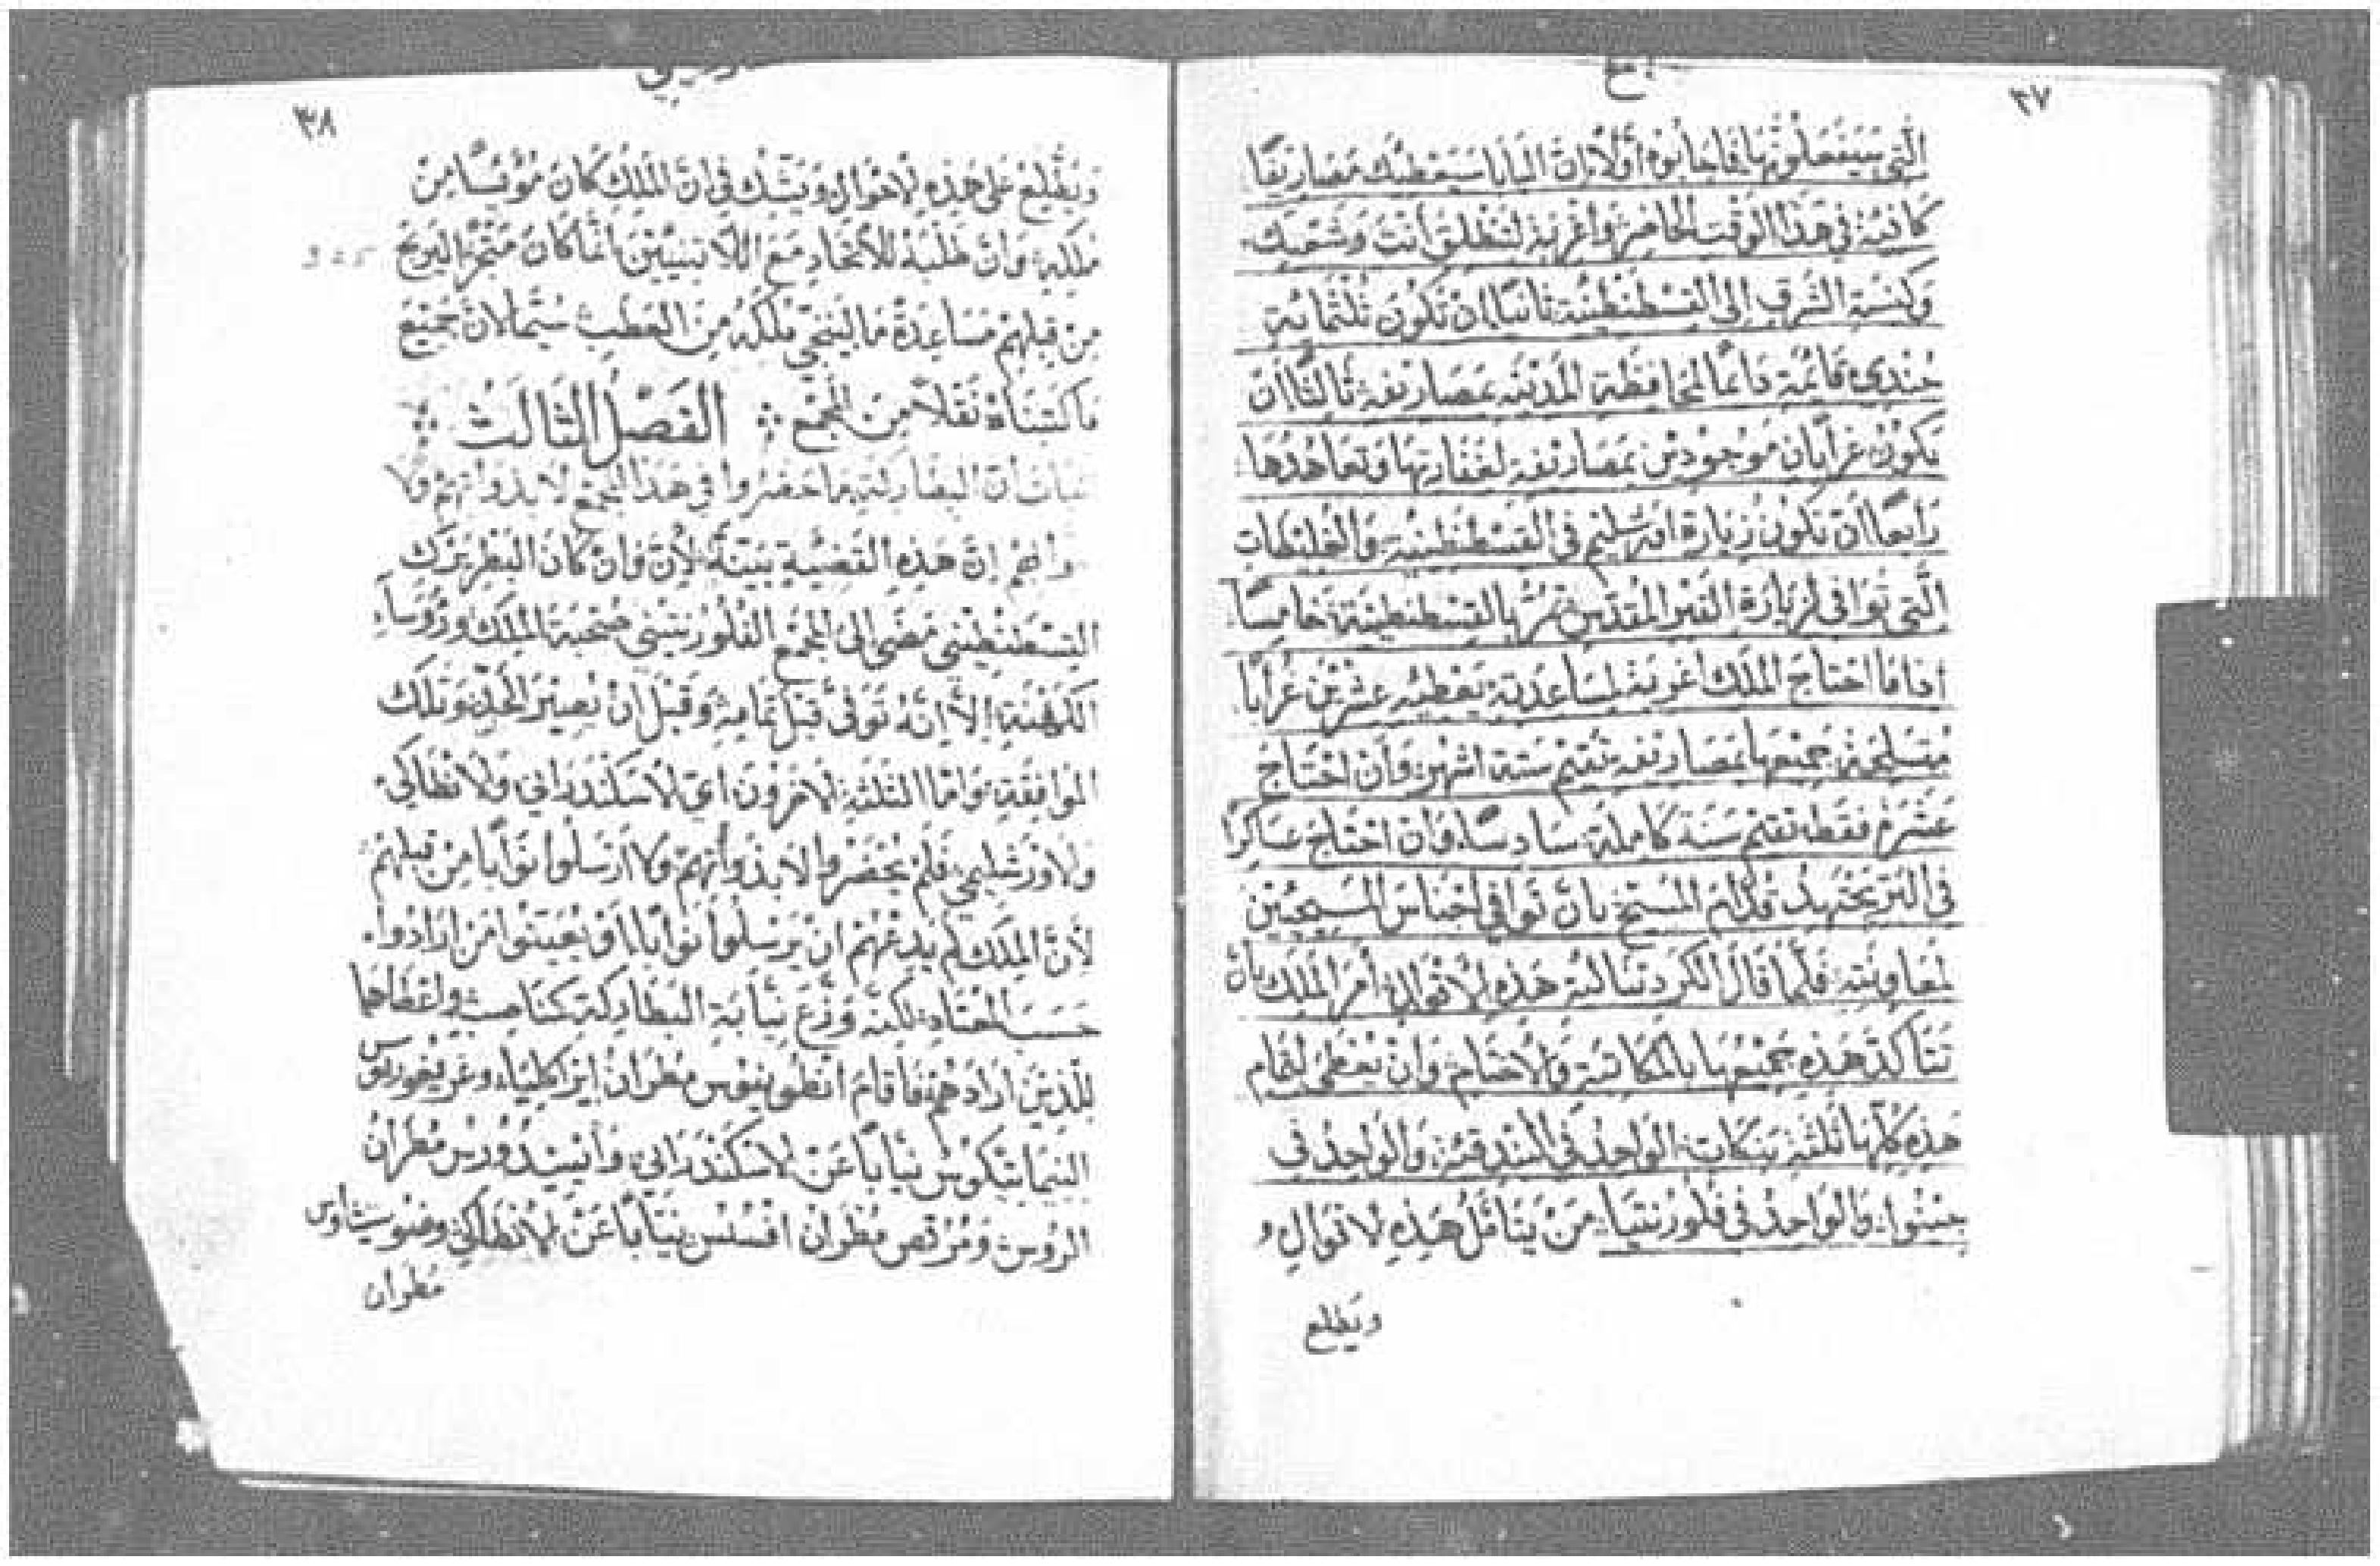 ٣٧
التي سيفعلونها فاجابوه أولاً ان البابا سيعطيك مصاريفًا
كافية في هذا الوقت الحاضر واغربة لتنطلق أنت وشعبك
وكنيسة الشرق إلى القسطنطينية ثانيًا ان تكون ثلثماية
جندي قائمة دائمًا لمحافظة المدينة بمصاريفه ثالثًا أن
تكون غرابان موجودين بمصاريفه لغفارتها وتعاهدها
رابعًا أن تكون زيارة اورشليم في القسطنطينية والغليظات
التي توافي لزيارة القبر المقدس تمر بالقسطنطينية خامسًا
اذا ما احتاج الملك اغربة لمساعدته يعطيه عشرين غرابًا
متسلحة جميعها بمصاريفه تقيم ستة اشهر وأن احتاج
عشرة فقط تقيم سنة كاملة سادسًا وان احتاج عساكرًا
في البر يجتهد قدام المسيح بان توافي اجناس المسيحيين
لمعاونته فلما قال الكردينالية هذه الأقوال أمر الملك بأن
تتأكد هذه جميعها بالمكاتبة والاختام وان يعطى لتمام
هذه كلها ثلثة بنكات الواحد في البندقية والواحد في
جينوا والواحد في فلورنتيا من يتأمل هذه الاقوال و
ويطلع
٣٨
ويطلع على هذه الاحوال ويشك في ان الملك كان مويسًا من
ملكه وان طلبه للأتحاد مع اللاتينيين انما كان
من قبلهم مساعدة ما لينجي ملكه من العطب سيما لأن جميع
ما كتبناه نقلاً من المجمع الفصل الثالث
ان البطاركة ما حضروا في هذا المجمع لا بذواتهم ولا
ان هذه القضية بينة لأن وان كان البطريرك
القسطنطيني مضى الى المجمع الفلورنتيني صحبة الملك ورؤساء
الكهنة إلا انه توفى قبل تمامه وقبل ان يصير الحد وتلك
الموافقة واما الثلثة الاخرون اعني الاسكندراني والانطاكي
والاورشليمي فلم يحضروا لا بذواتهم ولا أرسلوا نوابًا من قبلهم
لأن الملك لم يدعهم ان يرسلوا نوابًا أو يعينوا من ارادوا
حسب المعتاد لكنه وزع نيابة البطاركة كمناصب واعطاها
للذين ارادهم فاقام انطونيوس مطران ايراكليا وغريغوريس
نيابًا عن الاسكندراني وايسيدورس مطران
الروس ومرقص مطران افسس نيابًا عن الانطاكي
مطران